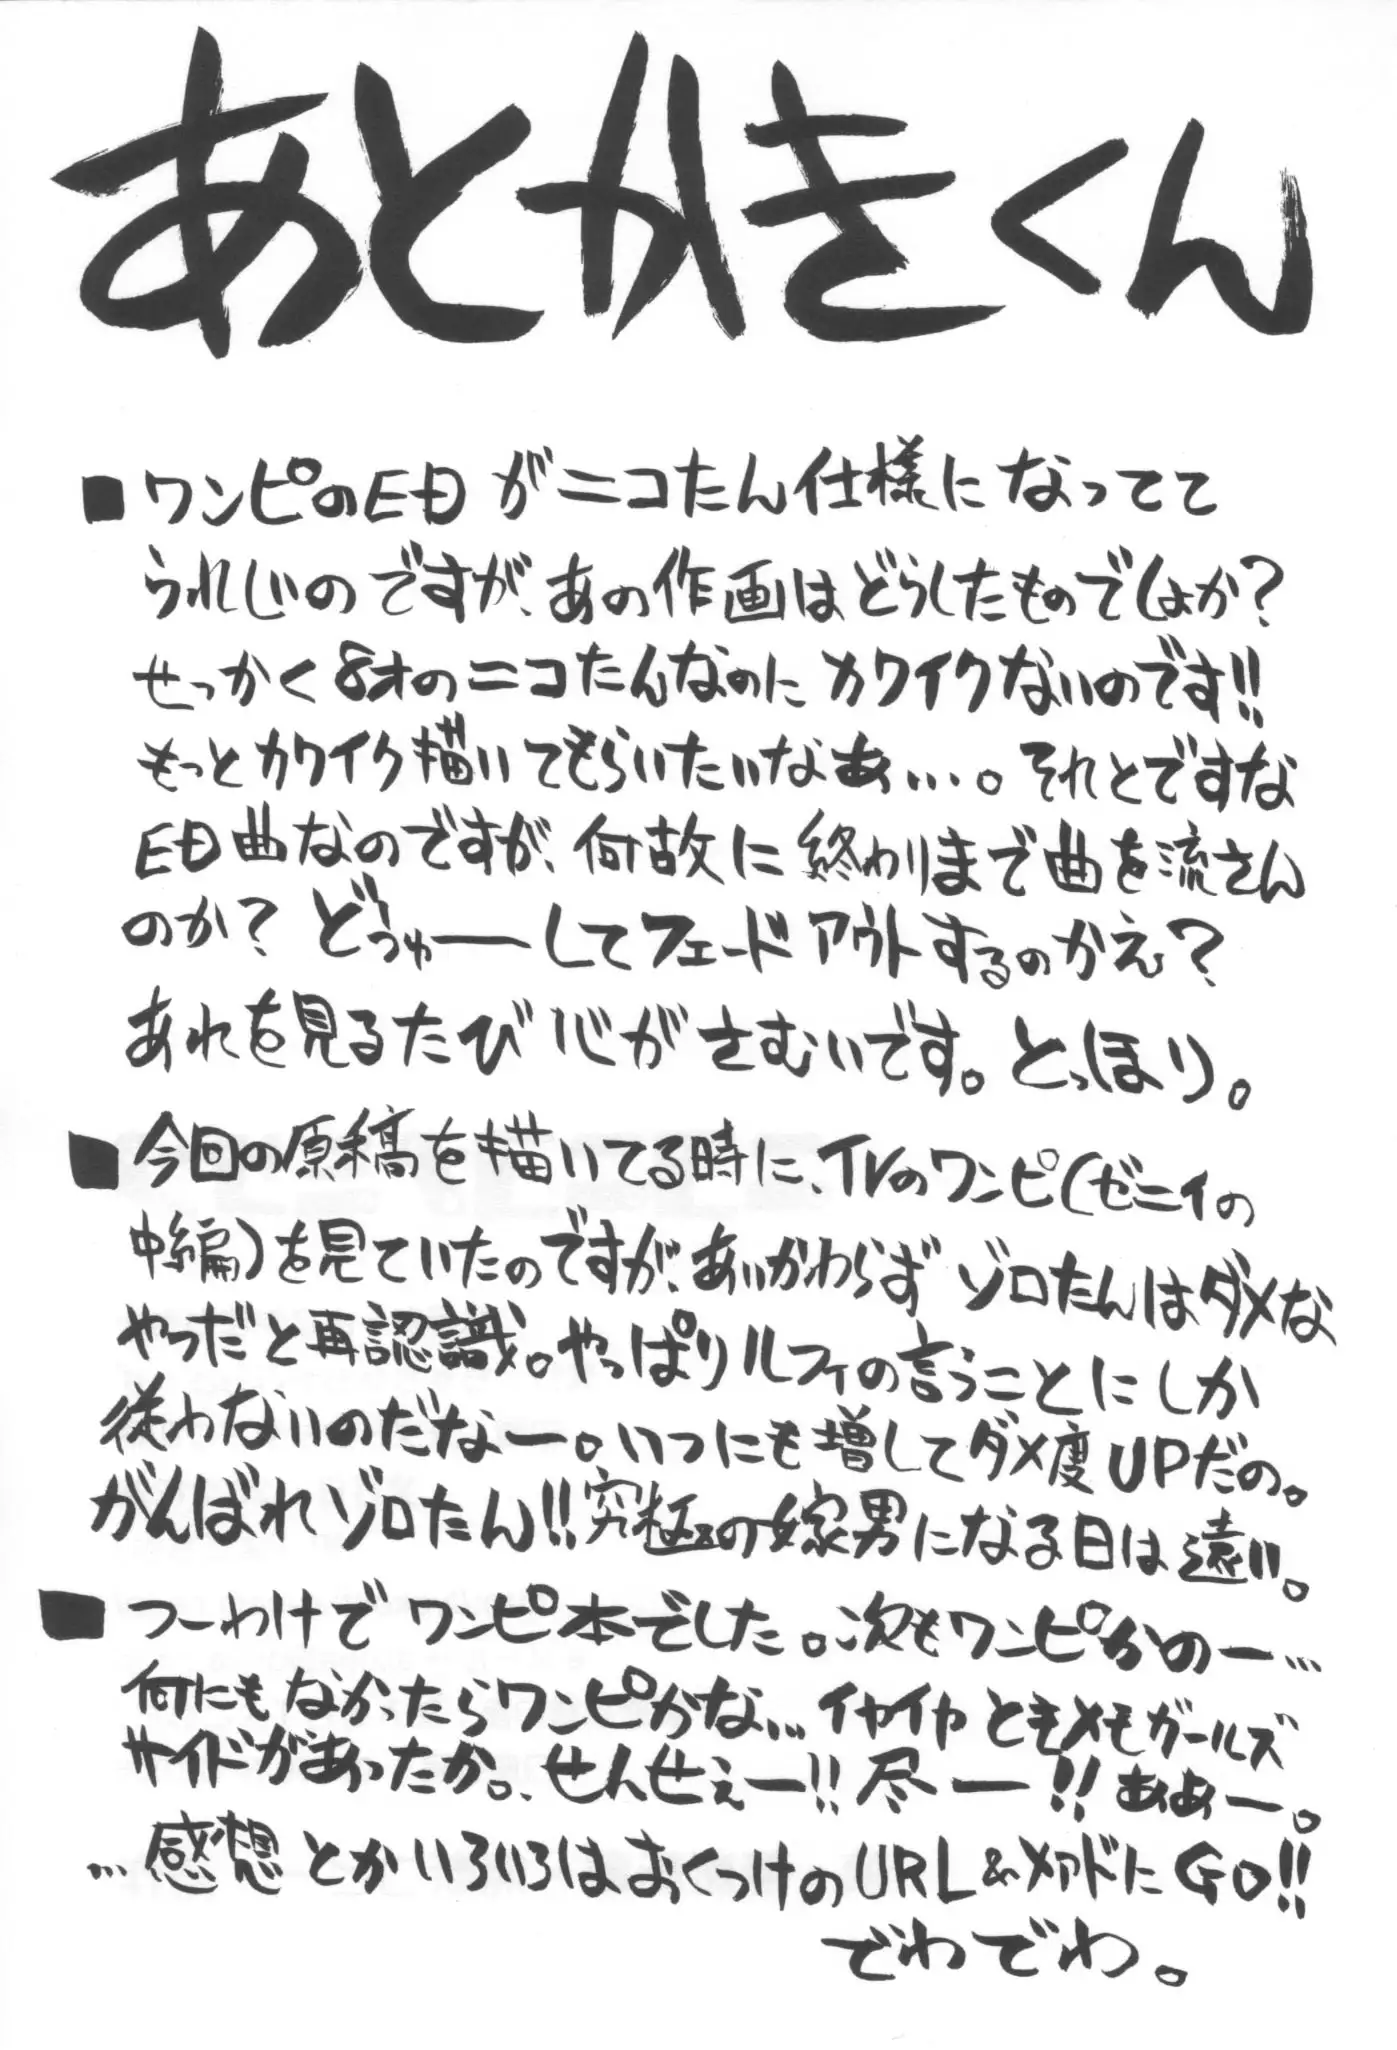 あとがきくん
■ワンピのEDがニコたん仕様になってて
うれしいのですが、あの作画はどうしたものでしょか?
せっかく8才のニコたんなのにカワイクないのです!!
もっとカワイク描いてもらいたいなぁ…。それとですな
ED曲なのですが、何故に終わりまで曲を流さん
のか? どぅゅーしてフェードアウトするのかえ?
あれを見るたび心がさむいです。とっほり。
■今回の原稿を描いてる時に、TVのワンピ(ゼニィの
中編)を見ていたのですが、あいかわらずゾロたんはダメな
やつだと再認識。やっぱりルフィの言うことにしか
従わないのだなー。いつにも増してダメ度UPだの。
がんばれゾロたん!!究極の嫁男になる日は遠い。
■つーわけでワンピ本でした。次もワンピかのー…
何にもなかったらワンピかな…イヤイヤときメモガールズ
サイドがあったか。せんせぇー!!尽ー!!ああー。
…感想とかいろいろはおくつけのURL&メアドにGO!!
でわでわ。